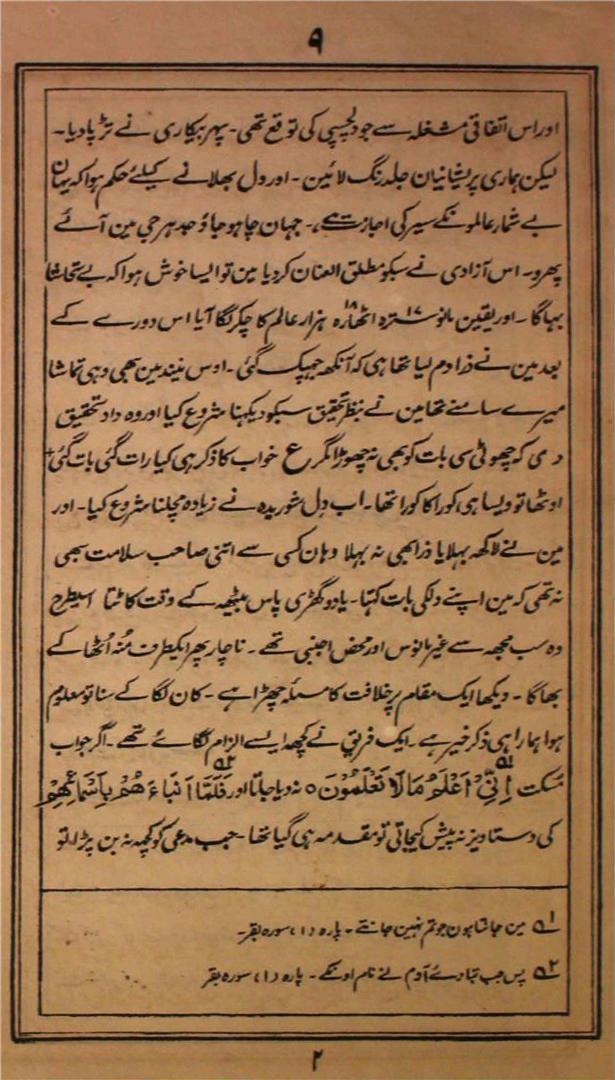 ۹
اور اس اتفاقی مشغلہ سے جو دلچسپی کی توقع تھی۔ پہر بیکاری نے تڑپادیا۔
لیکن ہماری پریشانیان جلد رنگ لائین۔ اور دل بھلانے کیلئے حکم ہوا کہ یہان
بے شمار عالمونکے سیر کی اجازت ہے،۔ جہان چاہو جاؤ جدہر جی مین آئے
پھرو۔ اس آزادی نے سبکو مطلق العنان کردیا مین تو ایسا خوش ہوا کہ بے تحاشا
بہاگا۔ اور یقین مانو سترہ ۱۷ اٹھارہ ۱۸ ہزار عالم کا چکر لگا آیا اس دورے کے
بعد مین نے ذرا دم لیا تھا ہی کہ آنکھ جہپک گئی۔ اوس نیند مین بھی وہی تماشا
میرے سامنے تھا مین نے بنظر تحقیق سبکو دیکہنا شروع کیا اور وہ داد تحقیق
دی کہ چھوٹی سی بات کو بھی نہ چھوڑا مگر ع خواب کا ذکر ہی کیا رات گئی بات گئی
اوٹھا تو ویسا ہی کورا کا کورا تھا۔ اب دل شوریدہ نے زیادہ مچلنا شروع کیا۔ اور
مین نے لاکھہ بہلایا ذرا بھی نہ بہلا وہان کسی سے اتنی صاحب سلامت بھی
نہ تھی کہ مین اپنے دلکی بات کہتا۔ یا دو گھڑی پاس بیٹھیہ کے وقت کاٹتا اسیطرح
وہ سب مجھہ سے غیر مانوس اور محض اجنبی تھے۔ ناچار پھر ایکطرف مُنہ اُٹھا کے
بھاگا۔ دیکھا ایک مقام پر خلافت کا مسئلہ چھڑا ہے۔ کان لگا کے سنا تو معلوم
ہوا ہمارا ہی ذکر خیر ہے۔ ایک فریق نے کچھہ ایسے الزام لگائے تھے۔ اگر جواب
مسکت اِنِّیْٓ اَعْلَمُ مَالَا تَعْلَمُوْنَ ۵۱ نہ دیا جاتا اور فَلَمَّا اَنْبَاءَ هُمْ بِاَسْمَائِهِمْ ۵۲
کی دستاویز نہ پیش کیجاتی تو مقدمہ ہی گیا تھا۔ جب مدعی کو کچھہ نہ بن پڑا تو
۵۱ مین جانتا ہون جو تم نہین جانتے۔ پارہ (۱)، سورہ بقر۔
۵۲ پس جب بتا دئے آدم نے نام اونکے۔ پارہ (۱) سورہ بقر
۲